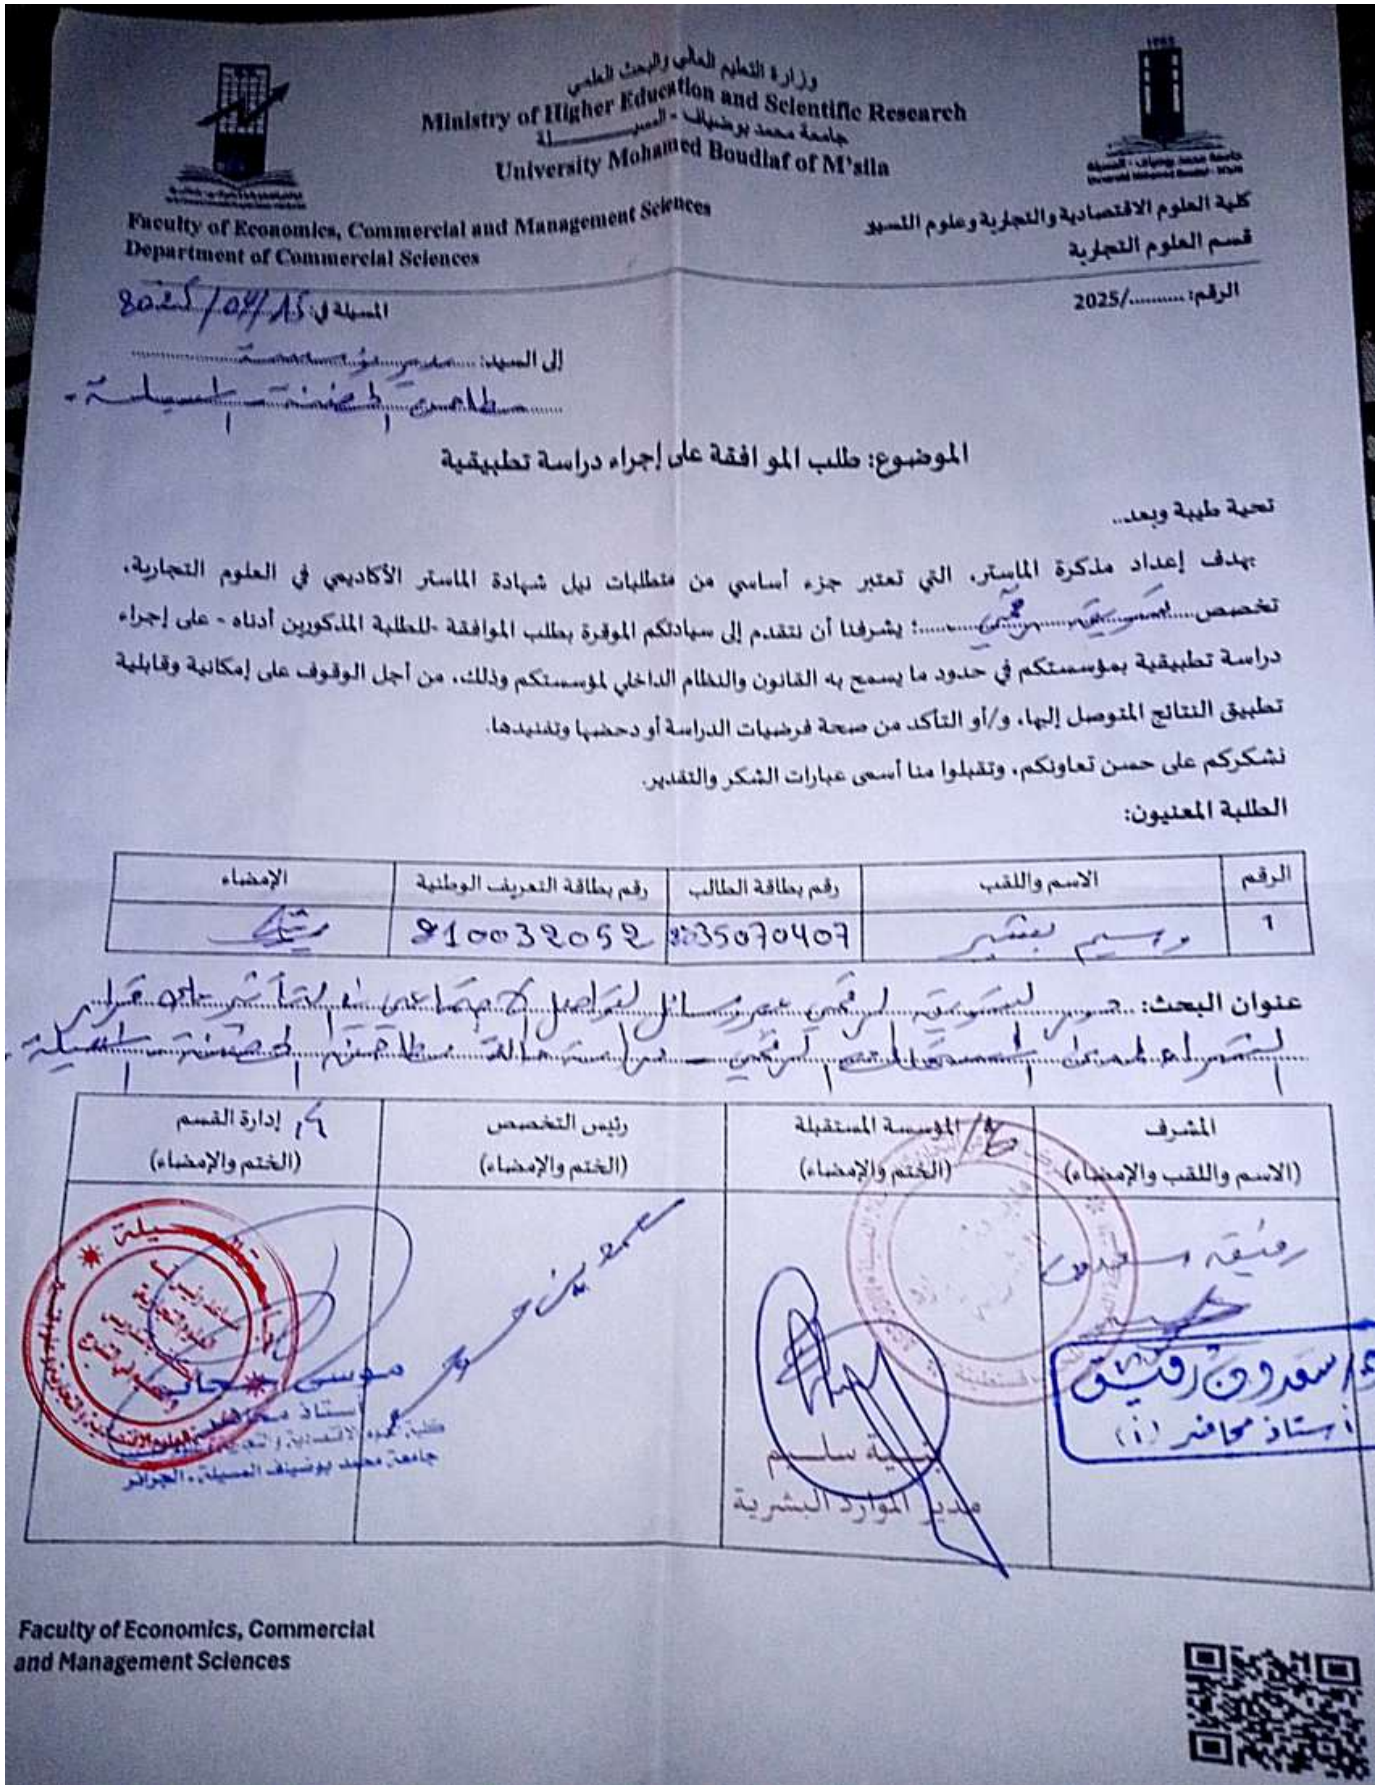 وزارة التعليم العالي والبحث العلمي
Ministry of Higher Education and Scientific Research
جامعة محمد بوضياف - المسيلة
University Mohamed Boudiaf of M'sila
جامعة محمد بوضياف - المسيلة
كلية العلوم الاقتصادية والتجارية وعلوم التسيير
قسم العلوم التجارية
Faculty of Economics, Commercial and Management Sciences
Department of Commercial Sciences
الرقم: ........../2025
المسيلة في: 15/04/2025
إلى السيد: مدير مؤسسة
مطاحن الحضنة - المسيلة -
الموضوع: طلب الموافقة على إجراء دراسة تطبيقية
تحية طيبة وبعد..
بهدف إعداد مذكرة الماستر، التي تعتبر جزء أساسي من متطلبات نيل شهادة الماستر الأكاديمي في العلوم التجارية،
تخصص تسويق رقمي؛ يشرفنا أن نتقدم إلى سيادتكم الموقرة بطلب الموافقة -للطلبة المذكورين أدناه - على إجراء
دراسة تطبيقية بمؤسستكم في حدود ما يسمح به القانون والنظام الداخلي لمؤسستكم وذلك، من أجل الوقوف على إمكانية وقابلية
تطبيق النتائج المتوصل إليها، و/أو التأكد من صحة فرضيات الدراسة أو دحضها وتفنيدها.
نشكركم على حسن تعاونكم، وتقبلوا منا أسمى عبارات الشكر والتقدير.
الطلبة المعنيون:
الرقم الاسم واللقب رقم بطاقة الطالب رقم بطاقة التعريف الوطنية الإمضاء
1 وسيم 35070407 210032052
عنوان البحث: دور التسويق الرقمي عبر وسائل التواصل الاجتماعي في التأثير على قرار
الشراء لدى المستهلك الرقمي - دراسة حالة مطاحن الحضنة - المسيلة -
المشرف المؤسسة المستقبلة رئيس التخصص إدارة القسم
(الاسم واللقب والإمضاء) (الختم والإمضاء) (الختم والإمضاء) (الختم والإمضاء)
رفيق سعدون
د/ سعدون رفيق
أستاذ محاضر (أ)
سليم
مدير الموارد البشرية
موسى
أستاذ
جامعة محمد بوضياف المسيلة - الجزائر
Faculty of Economics, Commercial
and Management Sciences